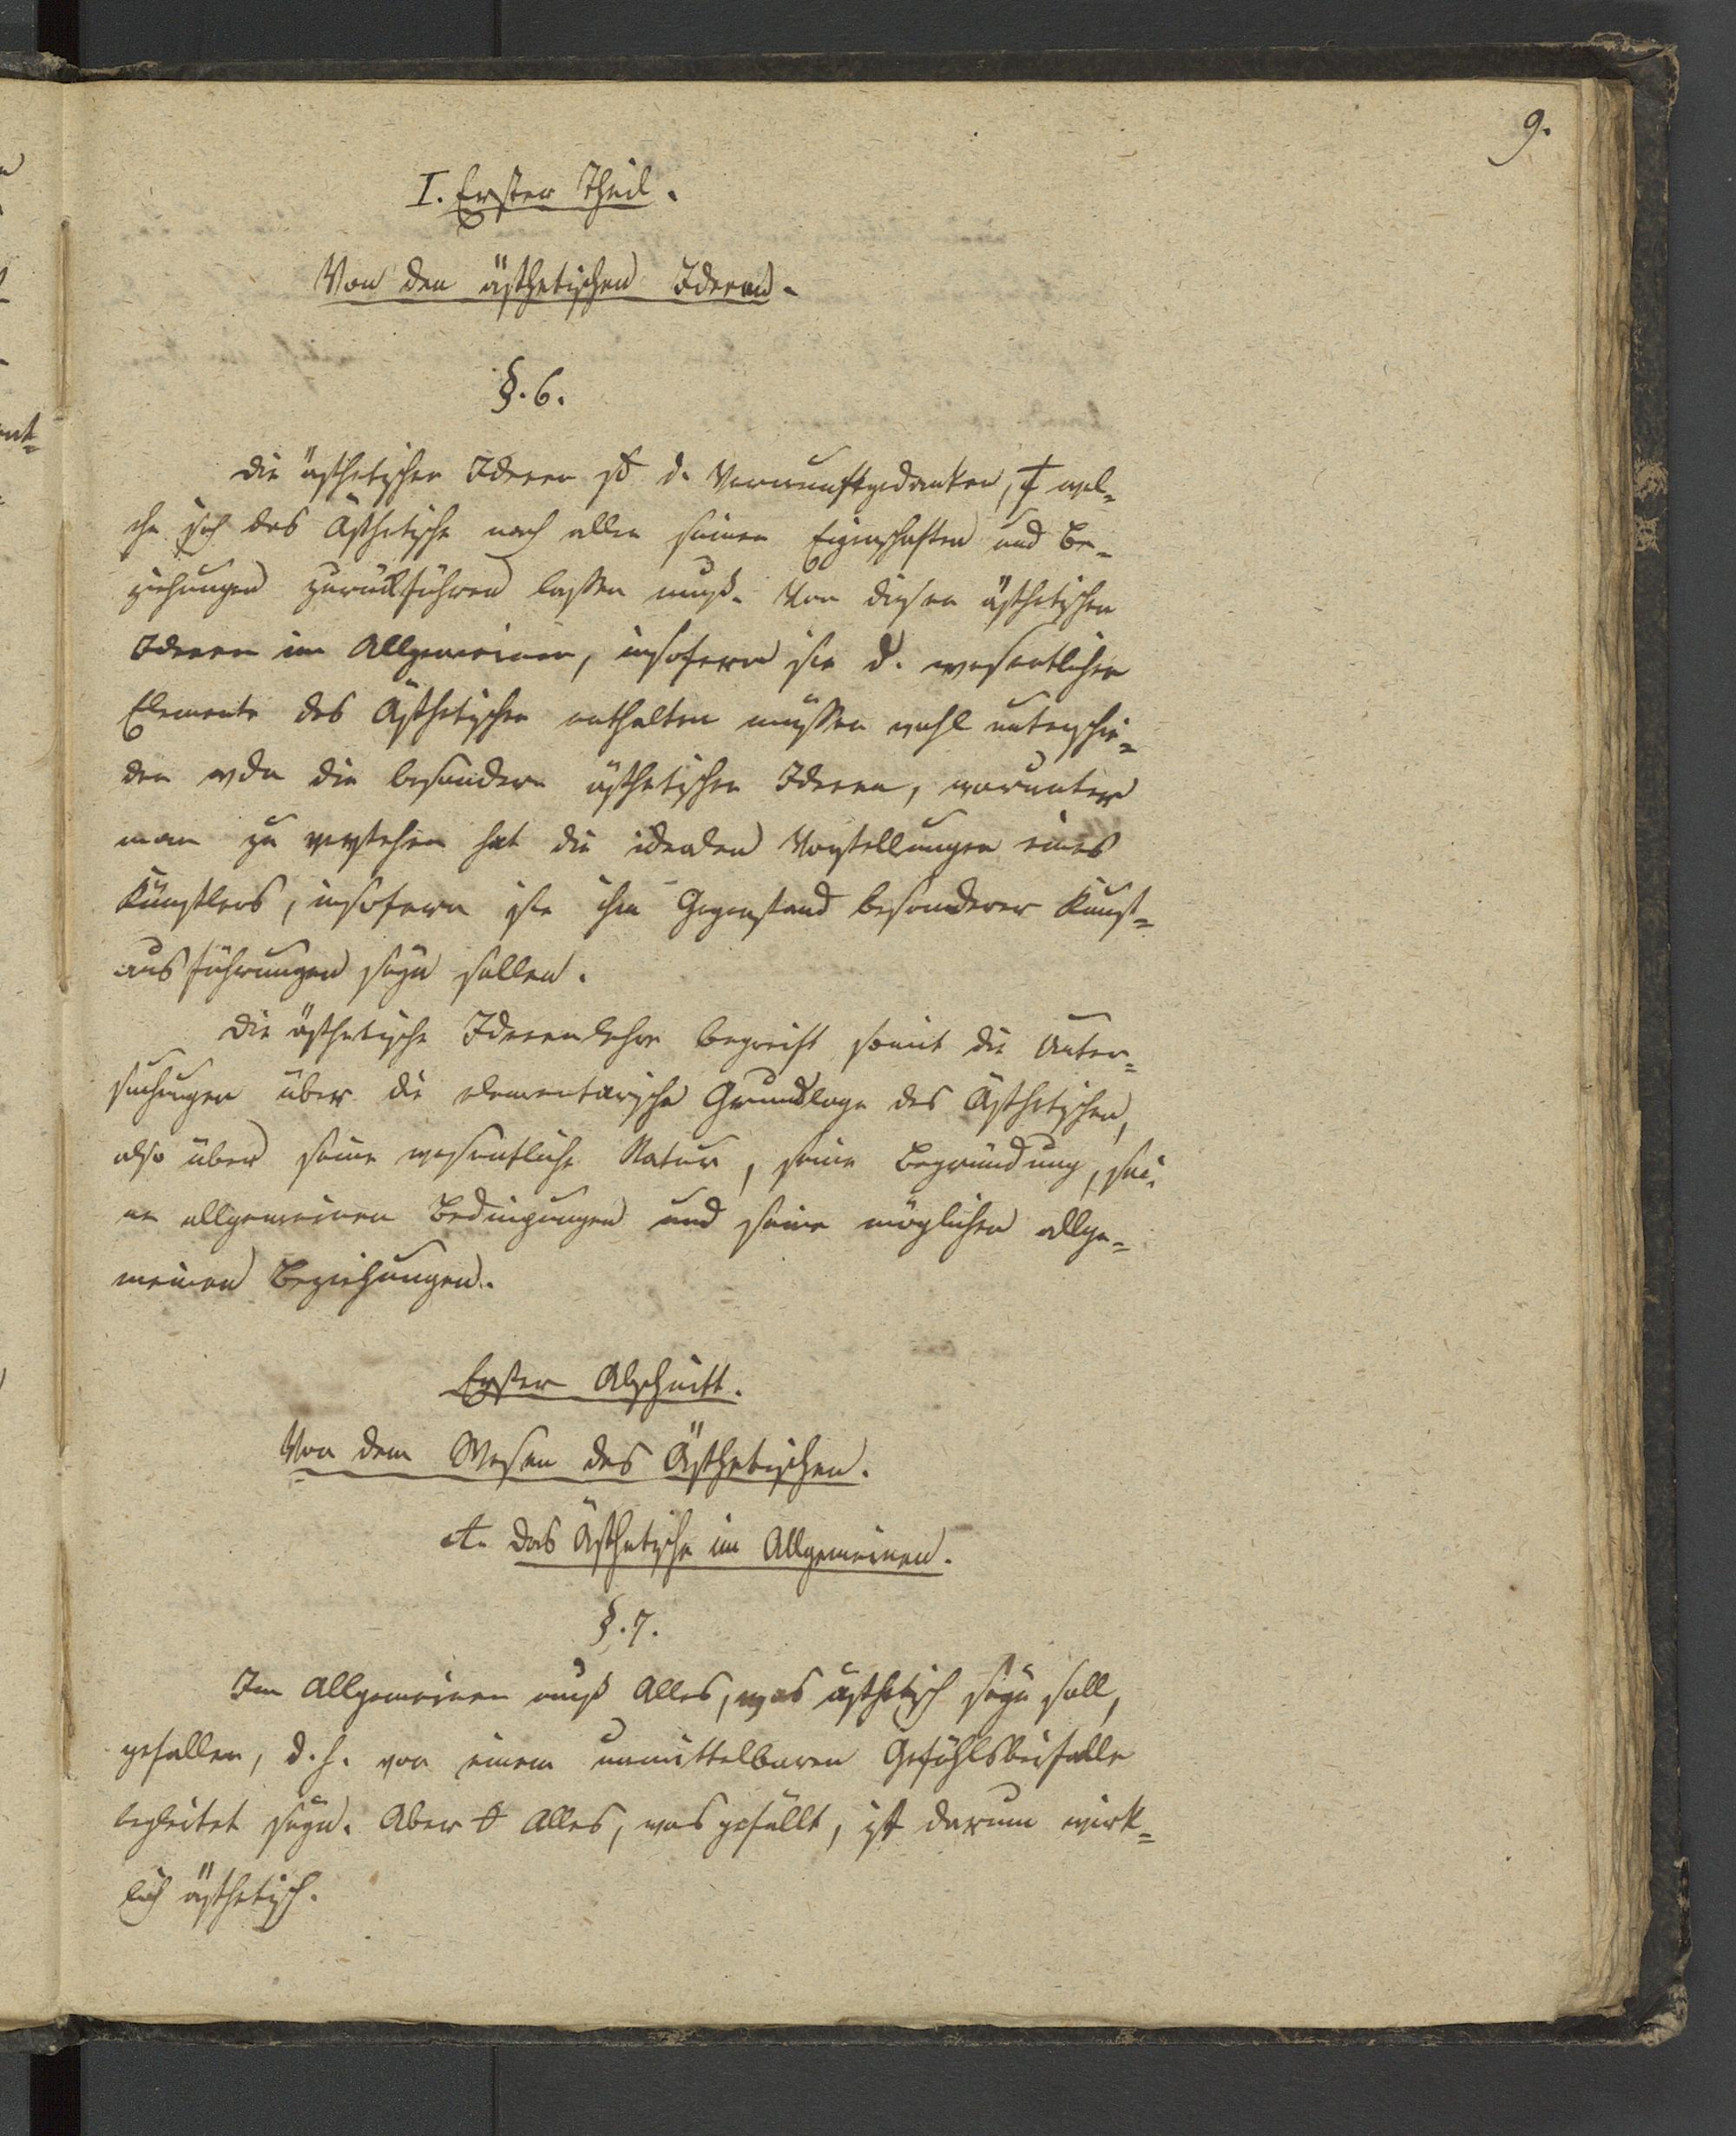 9.
I. Erster Theil.
Von den ästhetischen Ideen.
§. 6.
Die ästhetischen Ideen sd d. Vernunftgedanken, wel-
che sich das Ästhetische nach allen seinen Eigenschaften und Be-
ziehungen zurückführen lassen muß. Von diesen ästhetischen
Ideen im Allgemeinen, insofern sie d. wesentlichen
Elemente des Ästhetischen enthalten müssen wohl unterschie-
den wden die besondern ästhetischen Ideen, worunter
man zu verstehen hat die idealen Vorstellungen eines
Künstlers, insofern sie ihm Gegenstand besonderer Kunst-
ausführungen seyn sollen.
Die ästhetische Ideenlehre begreift somit die Unter-
suchungen über die elementarische Grundlage des Ästhetischen,
also über seine wesentliche Natur, seine Begründung, sei-
ne allgemeinen Bedingungen und seine möglichen allge-
meinen Beziehungen.
Erster Abschnitt.
Von dem Wesen des Ästhetischen.
A. Das Ästhetische im Allgemeinen.
§. 7.
Im Allgemeinen muß Alles, was ästhetisch seyn soll,
gefallen, d. h. von einem unmittelbaren Gefühlsbeifalle
begleitet seyn. Aber Alles, was gefällt, ist darum wirk-
lich ästhetisch.